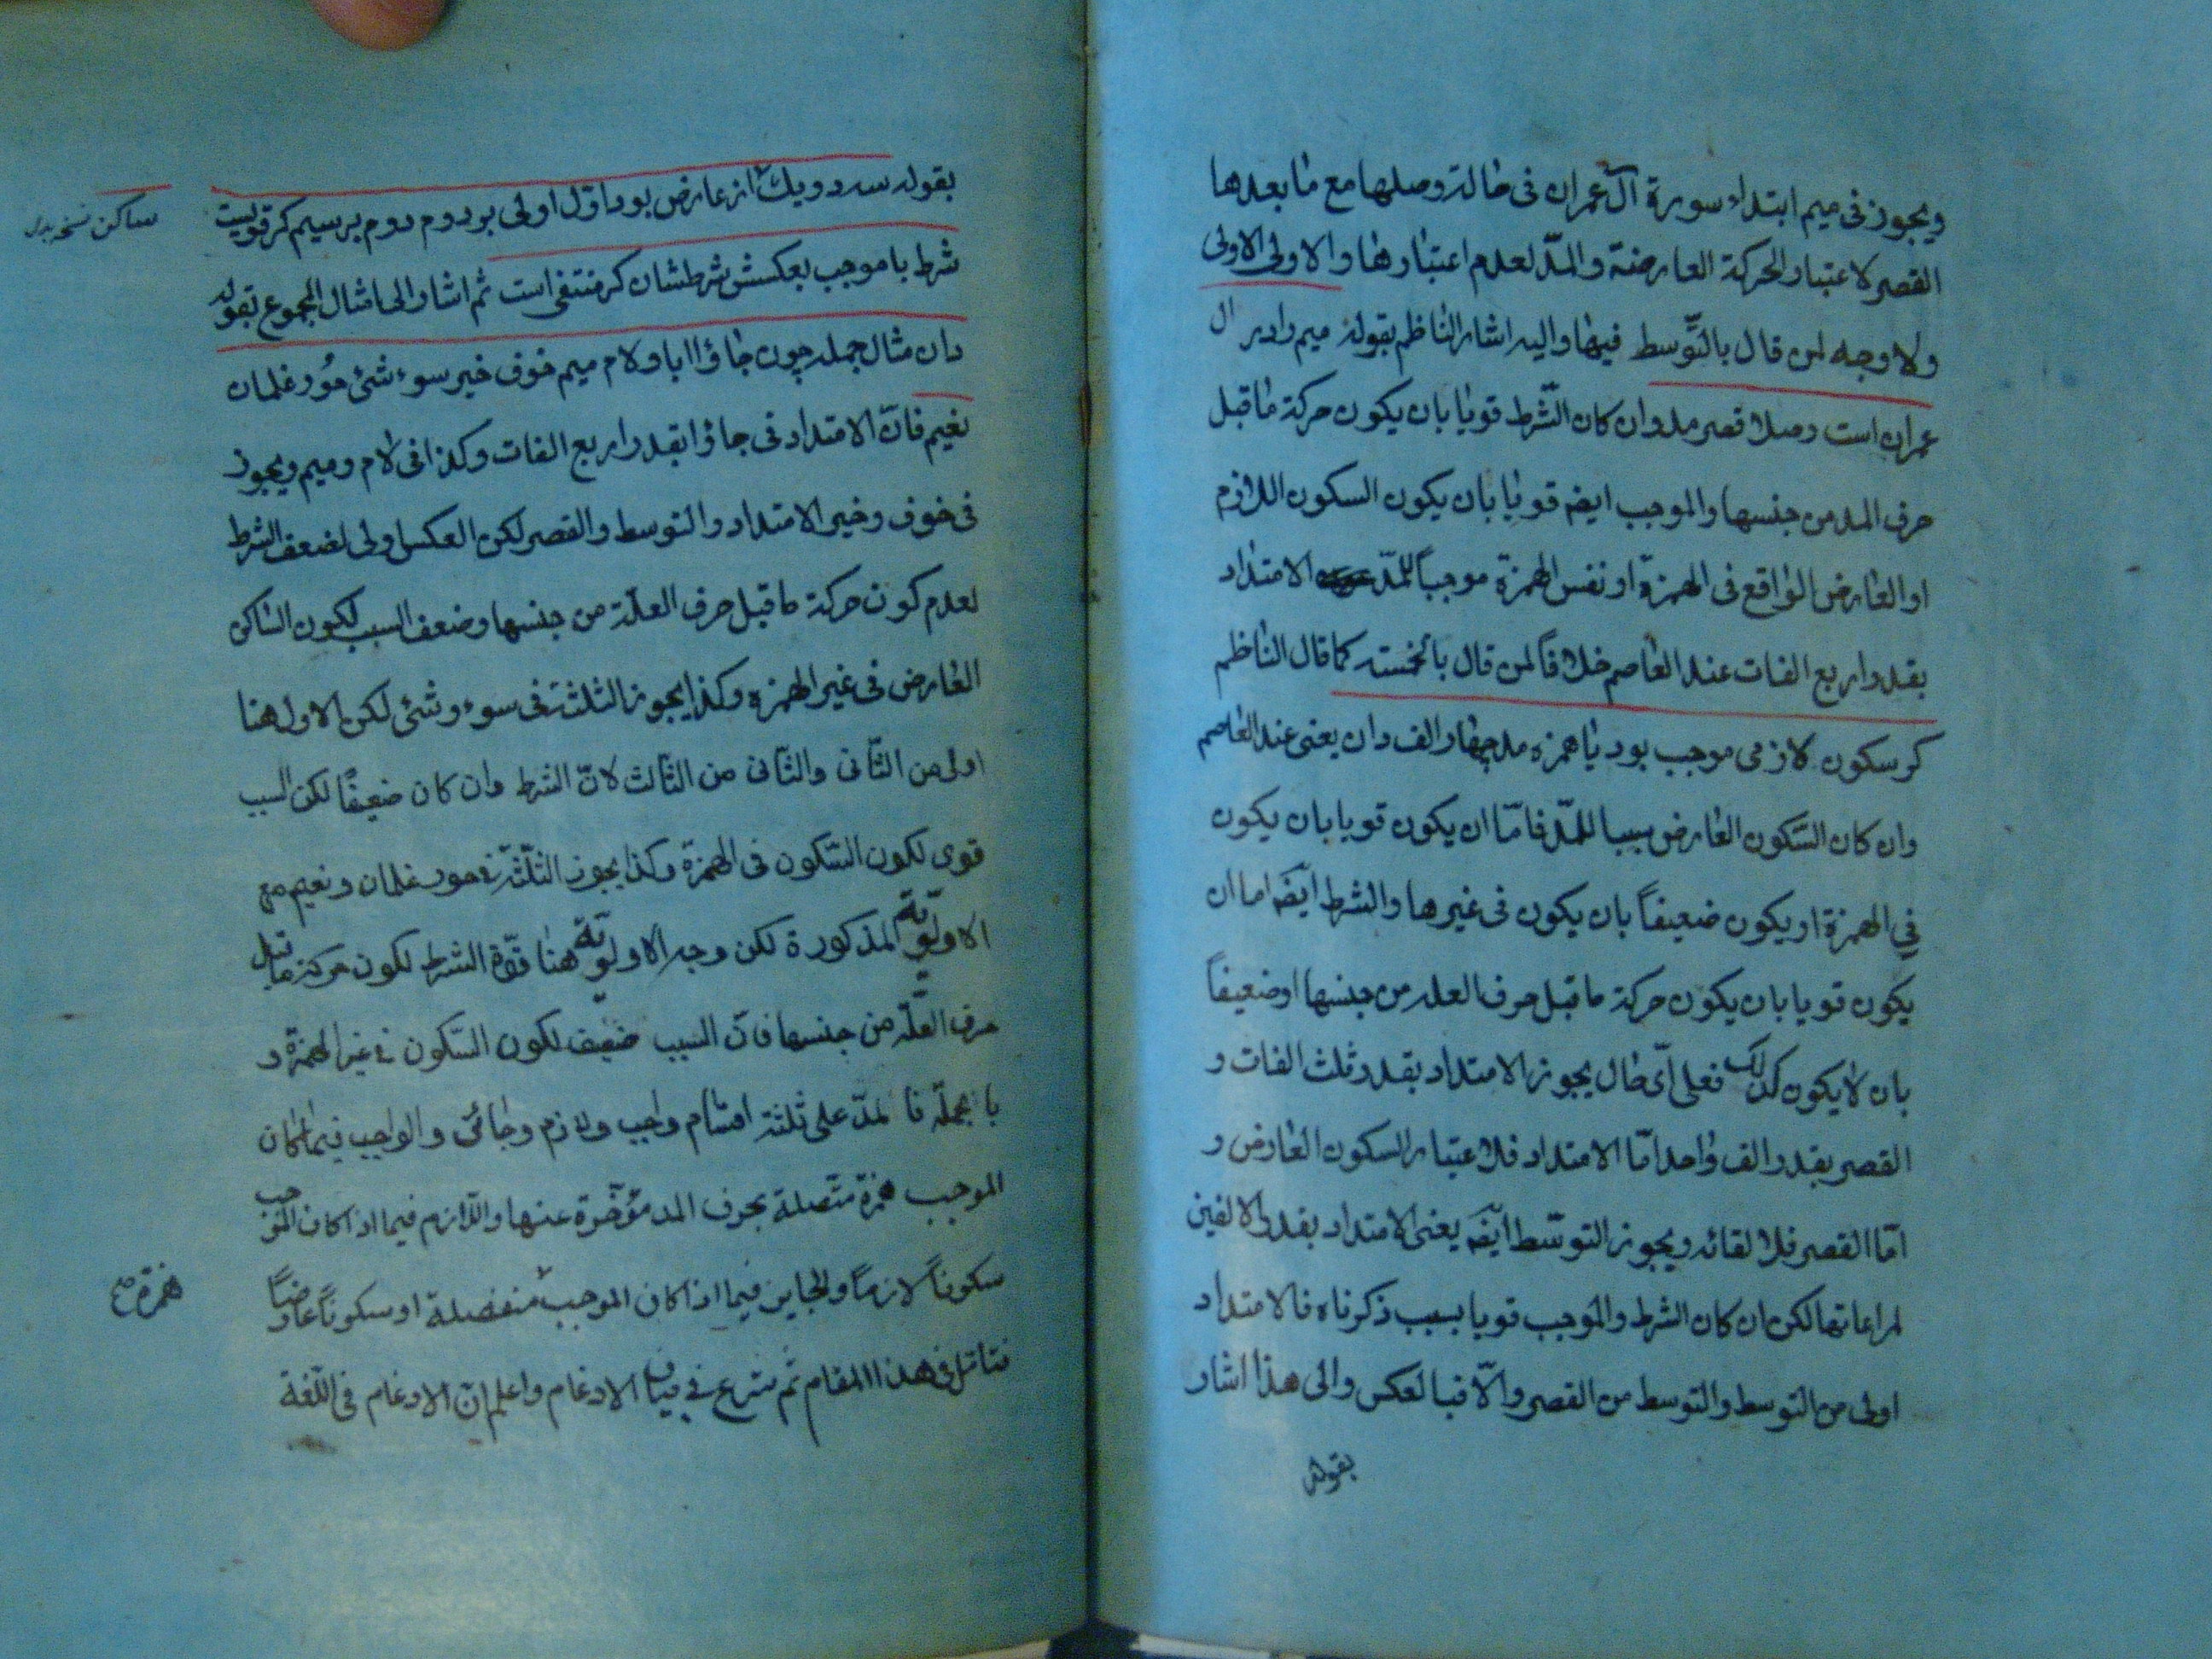 ويجوز فى ميم ابتداء سورة آل عمران فى حالة وصلها مع مابعدها
القصر لاعتبار الحركة العارضة والمدّ لعدم اعتبارها والاولى الاولى
ولا وجه لمن قال بالتّوسط فيها واليه اشار الناظم بقوله ميم رادر ال
عمران است وصلا قصر مد وان كان الشّرط قويا بان يكون حركة ماقبل
حرف المد من جنسها والموجب ايضه قويا بان يكون السكون اللازم
او العارض الواقع فى الهمزة او نفس الهمزة موجباً للمدّ الامتداد
بقدر اربع الفات عند العاصم خلافاً لمن قال بالخمسة كما قال الناظم
كر سكون لازمى موجب بود يا همزه مد چهار الف دان يعنى عند العاصم
وان كان السّكون العارض سببا للمدّ فامّا ان يكون قويا بان يكون
في الهمزة او يكون ضعيفاً بان يكون فى غيرها والشرط ايضه اما ان
يكون قويا بان يكون حركة ماقبل حرف العله من جنسها او ضعيفاً
بان لا يكون كذلك فعلى اىّ حال يجوز الامتداد بقدر ثلث الفات و
القصر بقدر الف واحد امّا الامتداد فلاعتبار السكون العارض و
امّا القصر فلالقائه ويجوز التوسّط ايضه يعنى الامتداد بقدر الالفين
لمراعاتها لكن ان كان الشرط والموجب قويا بسبب ذكرناه فالامتداد
اولى من التوسط والتوسط من القصر والّا فبالعكس والى هذا اشار
بقوله
بقوله سه دو يك از عارض بود اوّل اولى بر دوم دوم بر سيم كر قويست
ساكن نسخه بدل
شرط با موجب بعكسش شرطشان كر منتفى است ثم اشار الى امثال المجموع بقوله
دان مثال جمله چون جاؤا ابا ولام ميم خوف خير سوء شئ حُور غلمان
نعيم فانّ الامتداد فى جاؤا بقدر اربع الفات وكذا فى لام وميم ويجوز
فى خوف وخير الامتداد والتوسط والقصر لكن العكس اولى لضعف الشرط
لعدم كون حركة ماقبل حرف العلّة من جنسها وضعف السبب لكون الساكن
العارض فى غير الهمزه وكذا يجوز الثلثة فى سوء وشئ لكن الاول هنا
اولى من الثّانى والثانى من الثالث لانّ الشرط وان كان ضعيفًا لكن السبب
قوى لكون السّكون فى الهمزة وكذا يجوز الثلثة فى حور غلمان ونعيم مع
الاولويّة المذكورة لكن وجه الاولويّة هنا قوّة الشرط لكون حركة ماقبل
حرف العلّة من جنسها فانّ السبب ضعيف لكون السّكون فى غير الهمزة و
بالجملة فالمدّ على ثلثة اقسام واجب ولازم وجائز والواجب فيما كان
الموجب همزة متّصلة بحرف المد مؤخّرة عنها واللازم فيما اذا كان الموجب
سكوناً لازماً والجايز فيما اذا كان الموجب منفصلة او سكوناً عارضاً
همزة صح
فتامّل فى هذا المقام ثم شرع فى بيان الادغام واعلم انّ الادغام فى اللّغة